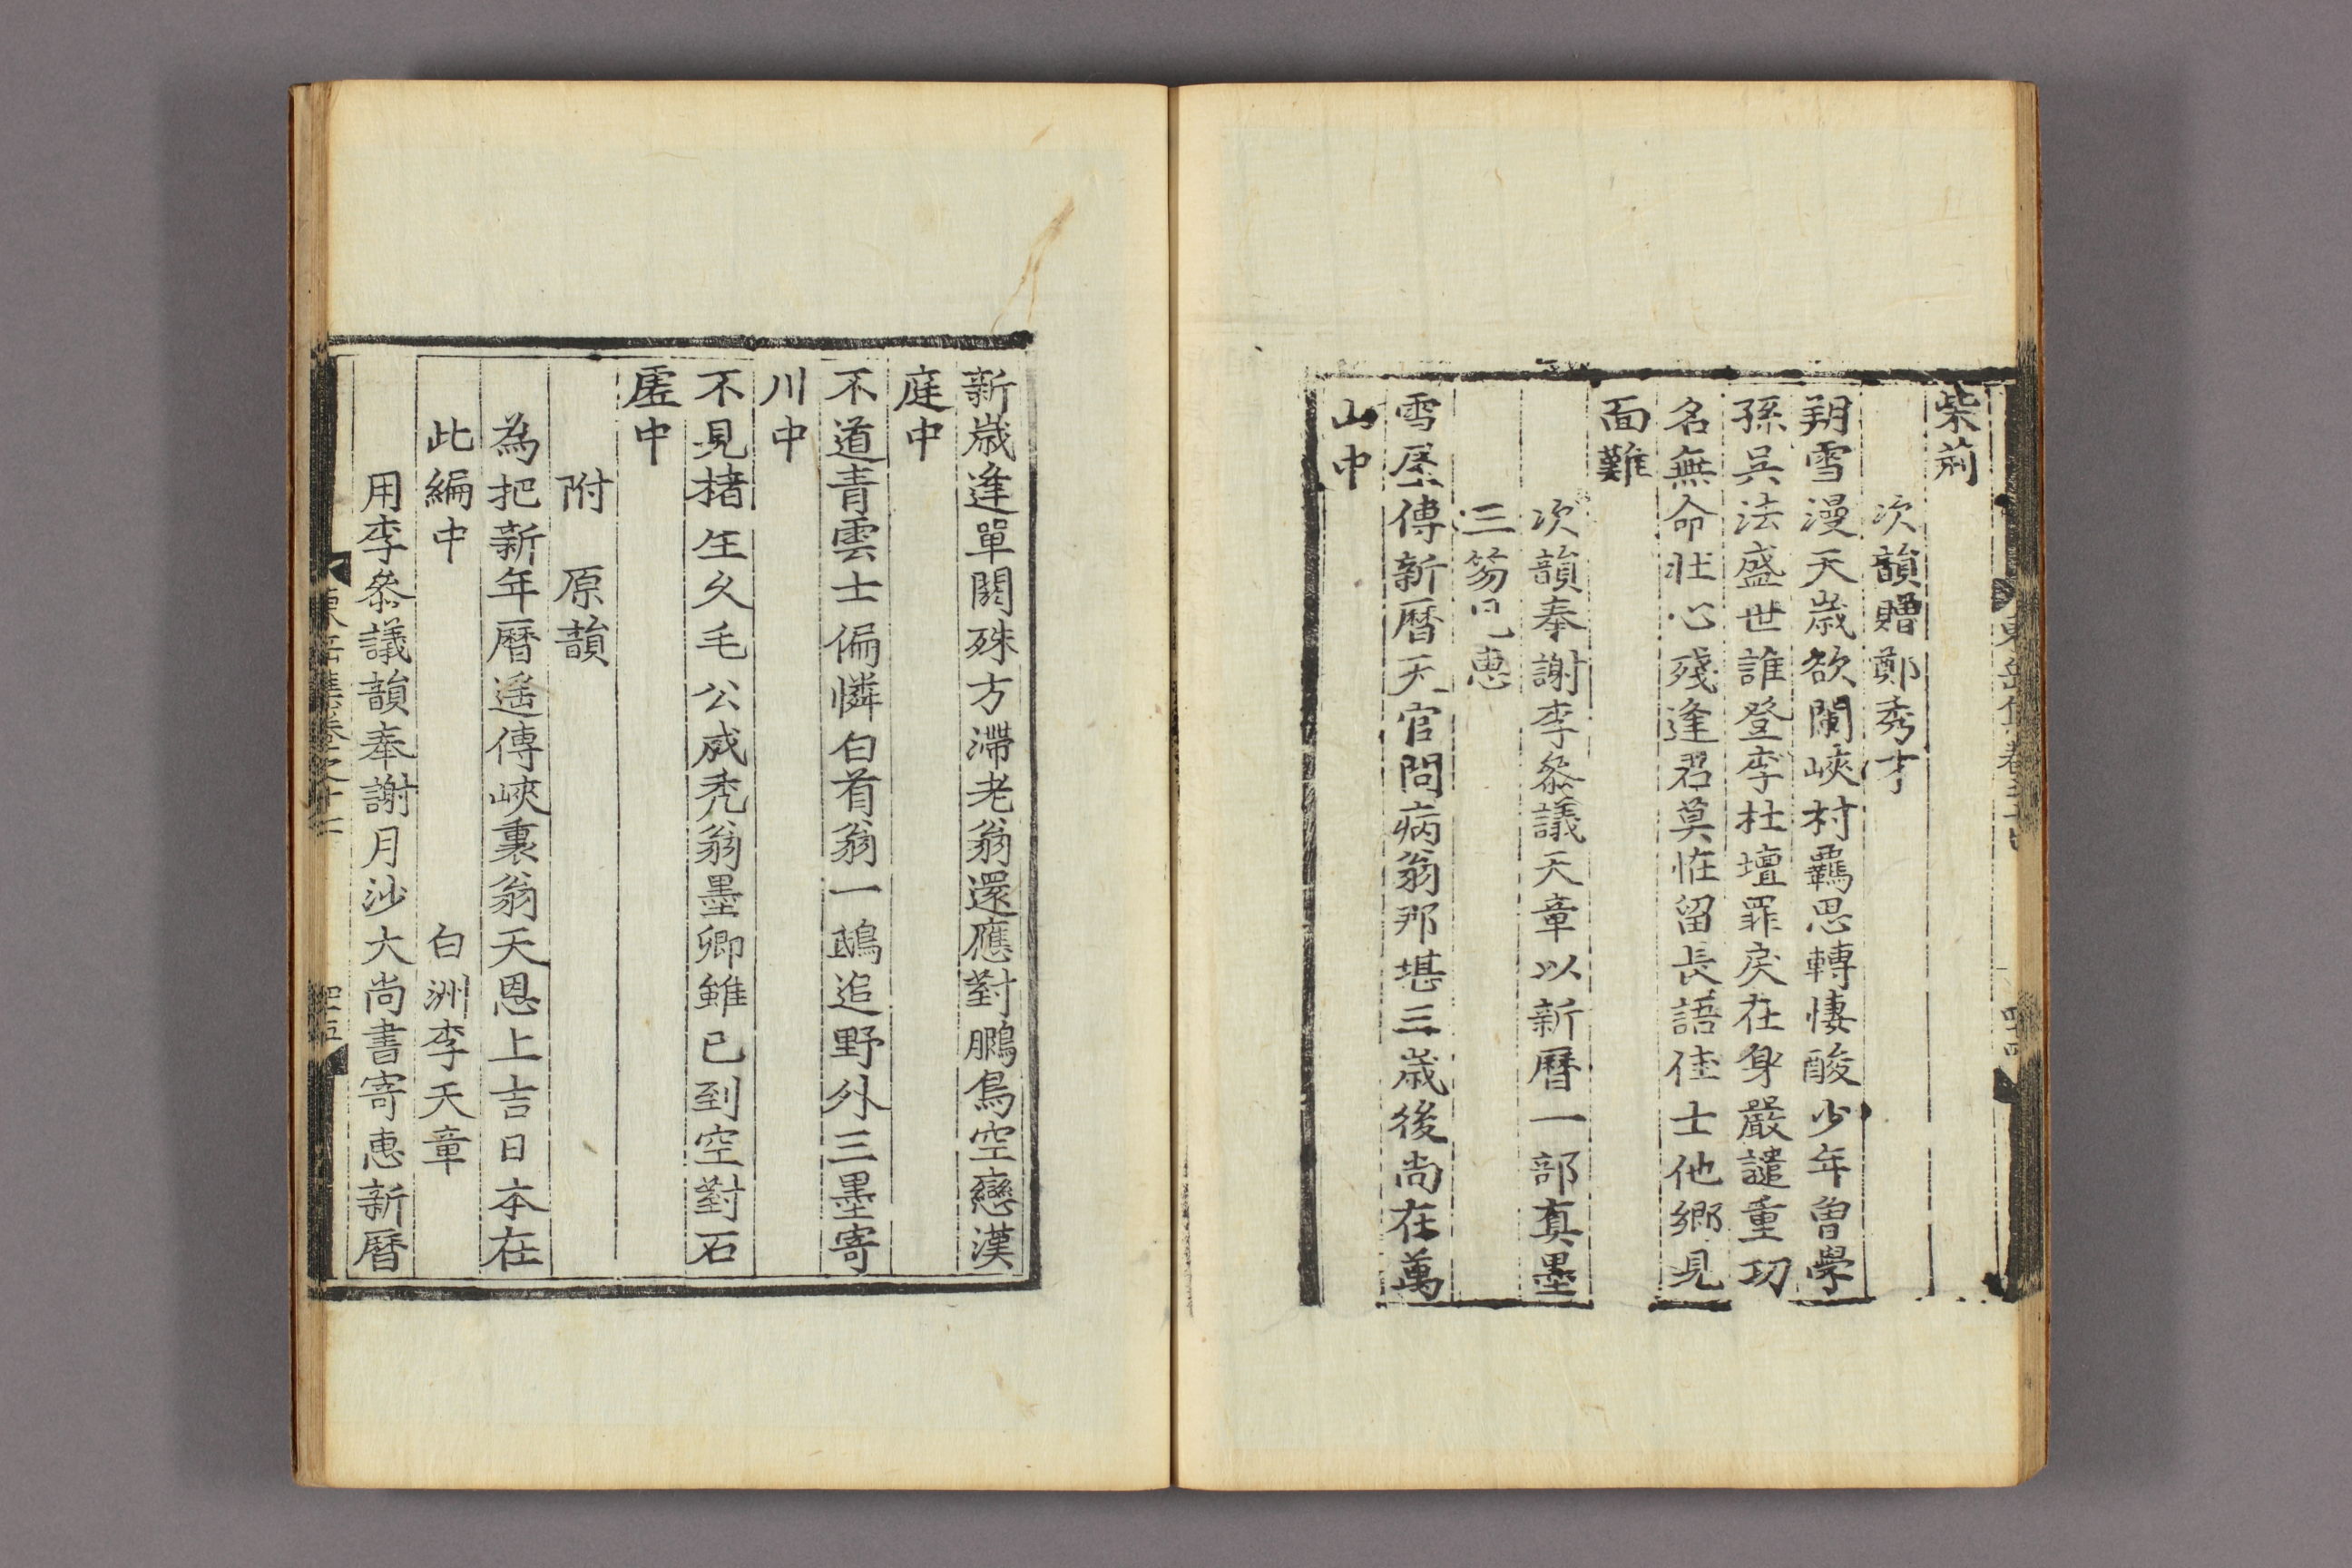 柴荊
次韻贈鄭秀才
朔雪漫天歲欲闌峽村羈思轉悽酸少年曾學
孫吳法盛世誰登李杜壇罪戾在身嚴譴重功
名無命壯心殘逢君莫恠留長語佳士他鄉見
面難
次韻奉謝李叅議天章以新曆一部真墨
三笏見惠
雪屋傳新曆天官問病翁那堪三歲後尚在萬
山中
新歲逢單閼殊方滯老翁還應對鵬鳥空戀漢
庭中
不道青雲士偏憐白首翁一鴟追野外三墨寄
川中
不見楮生久毛公咸禿翁墨卿雖已到空對石
虛中
附　原韻
為把新年曆遙傳峽裏翁天恩上吉日本在
此編中　白洲李天章
用李叅議韻奉謝月沙大尚書寄惠新曆